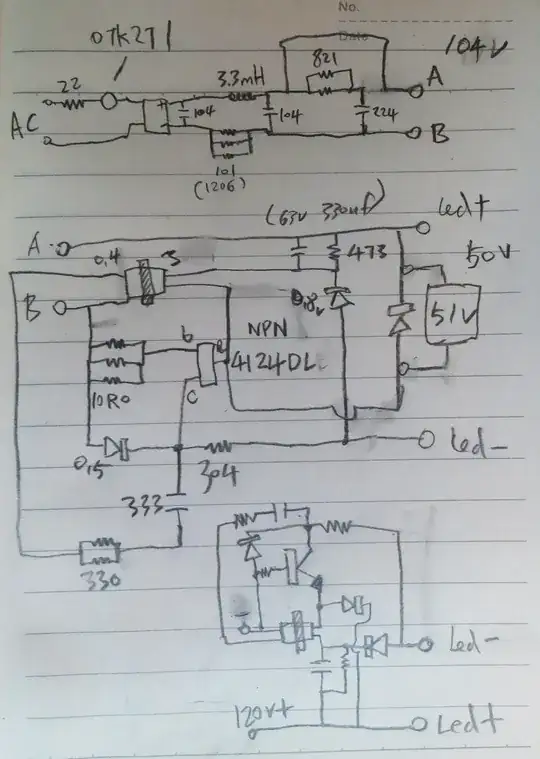 No.
Date
07K271
104V
22
3.3mH
821
A
AC
104
104
224
B
101
(1206)
(63V 330uf)
Led+
A
0.4
3
473
50V
B
0.8v
51V
NPN
b
e
4124DL
10R0
c
0.5
304
Led-
333
330
Led-
120V+
Led+